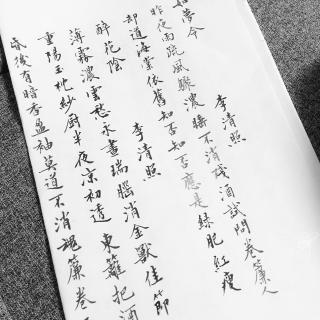 如夢令 李清照
昨夜雨疏風驟濃睡不消残酒試問卷簾人
却道海棠依舊知否知否應是綠肥紅瘦
醉花陰 李清照
薄霧濃雲愁永晝瑞腦消金獸佳節
重陽玉枕紗厨半夜凉初透 東籬把酒
昏後有暗香盈袖莫道不消魂簾卷